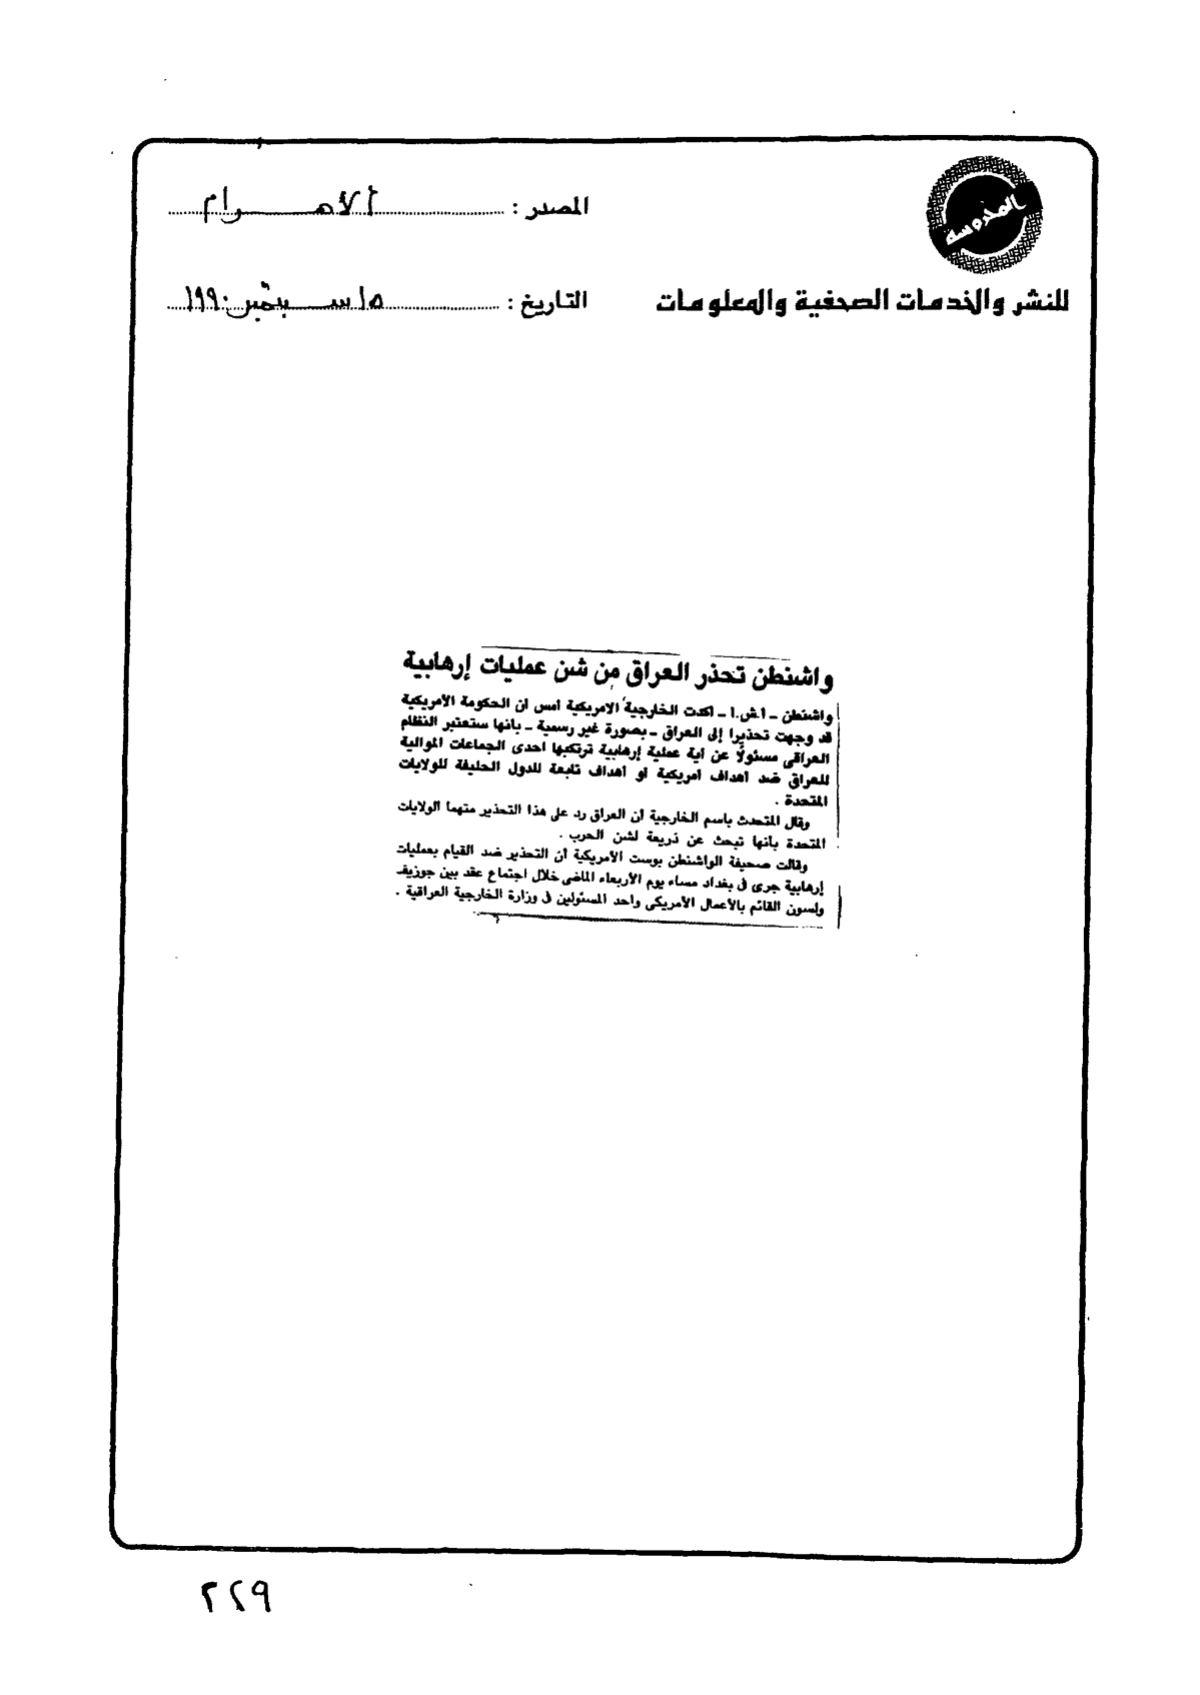 المحروسة
للنشر والخدمات الصحفية والمعلومات
المصدر : الأهرام
التاريخ : ١٥ سبتمبر ١٩٩٠
واشنطن تحذر العراق من شن عمليات إرهابية
واشنطن - ا.ش.ا - اكدت الخارجية الامريكية أمس ان الحكومة الأمريكية
قد وجهت تحذيرا إلى العراق - بصورة غير رسمية - بانها ستعتبر النظام
العراقى مسئولا عن اية عملية إرهابية ترتكبها احدى الجماعات الموالية
للعراق ضد أهداف امريكية او أهداف تابعة للدول الحليفة للولايات
المتحدة .
وقال المتحدث باسم الخارجية ان العراق رد على هذا التحذير متهما الولايات
المتحدة بأنها تبحث عن ذريعة لشن الحرب .
وقالت صحيفة الواشنطن بوست الأمريكية أن التحذير ضد القيام بعمليات
إرهابية جرى فى بغداد مساء يوم الأربعاء الماضى خلال اجتماع عقد بين جوزيف
ولسون القائم بالأعمال الأمريكى واحد المسئولين فى وزارة الخارجية العراقية .
٢٢٩